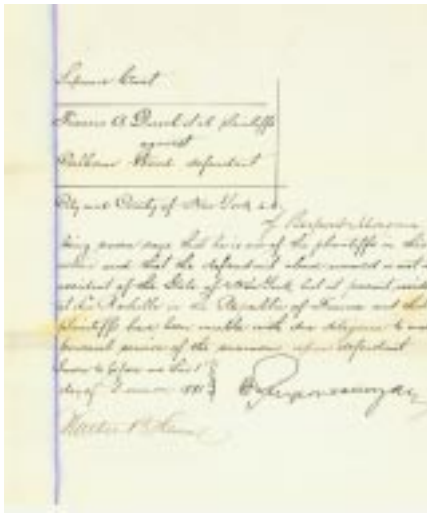 Supreme Court
Francis A Drexel et al plaintiffs
against
defendant
City and County of New York ss.
J. Pierpont Morgan
being sworn says that he is one of the plaintiffs in this
action and that the defendant above named is not a
resident of the State of New York but at present resides
at La Rochelle in the Republic of France and that
plaintiffs have been unable with due diligence to make
personal service of the summons upon defendant
Sworn to before me this
day of 188
J. Pierpont Morgan